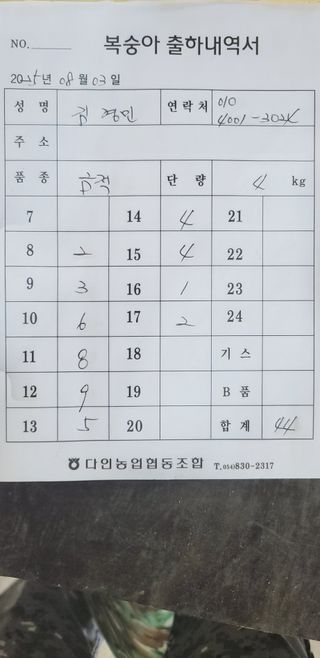 NO.
복숭아 출하내역서
2025년 08월 03일
성 명 김경민 연락처 010
4001-3024
주 소
품 종 단 량 4 kg
7 14 4 21
8 2 15 4 22
9 3 16 1 23
10 6 17 2 24
11 8 18 기 스
12 9 19 B 품
13 5 20 합 계 44
다인농업협동조합 T.054)830-2317